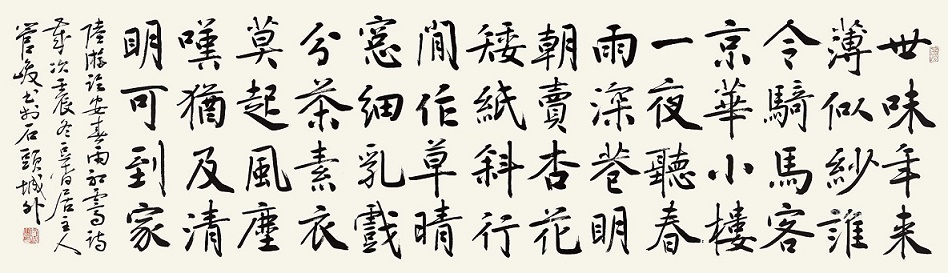 世味年来
薄似紗誰
令騎馬客
京華小樓
一夜聽春
雨深巷明
朝賣杏花
矮紙斜行
閒作草晴
窓細乳戲
分茶素衣
莫起風塵
嘆猶及清
明可到家
陸游臨安春雨初霽詩
歲次壬辰冬三省居主人
管峻书於石頭城外